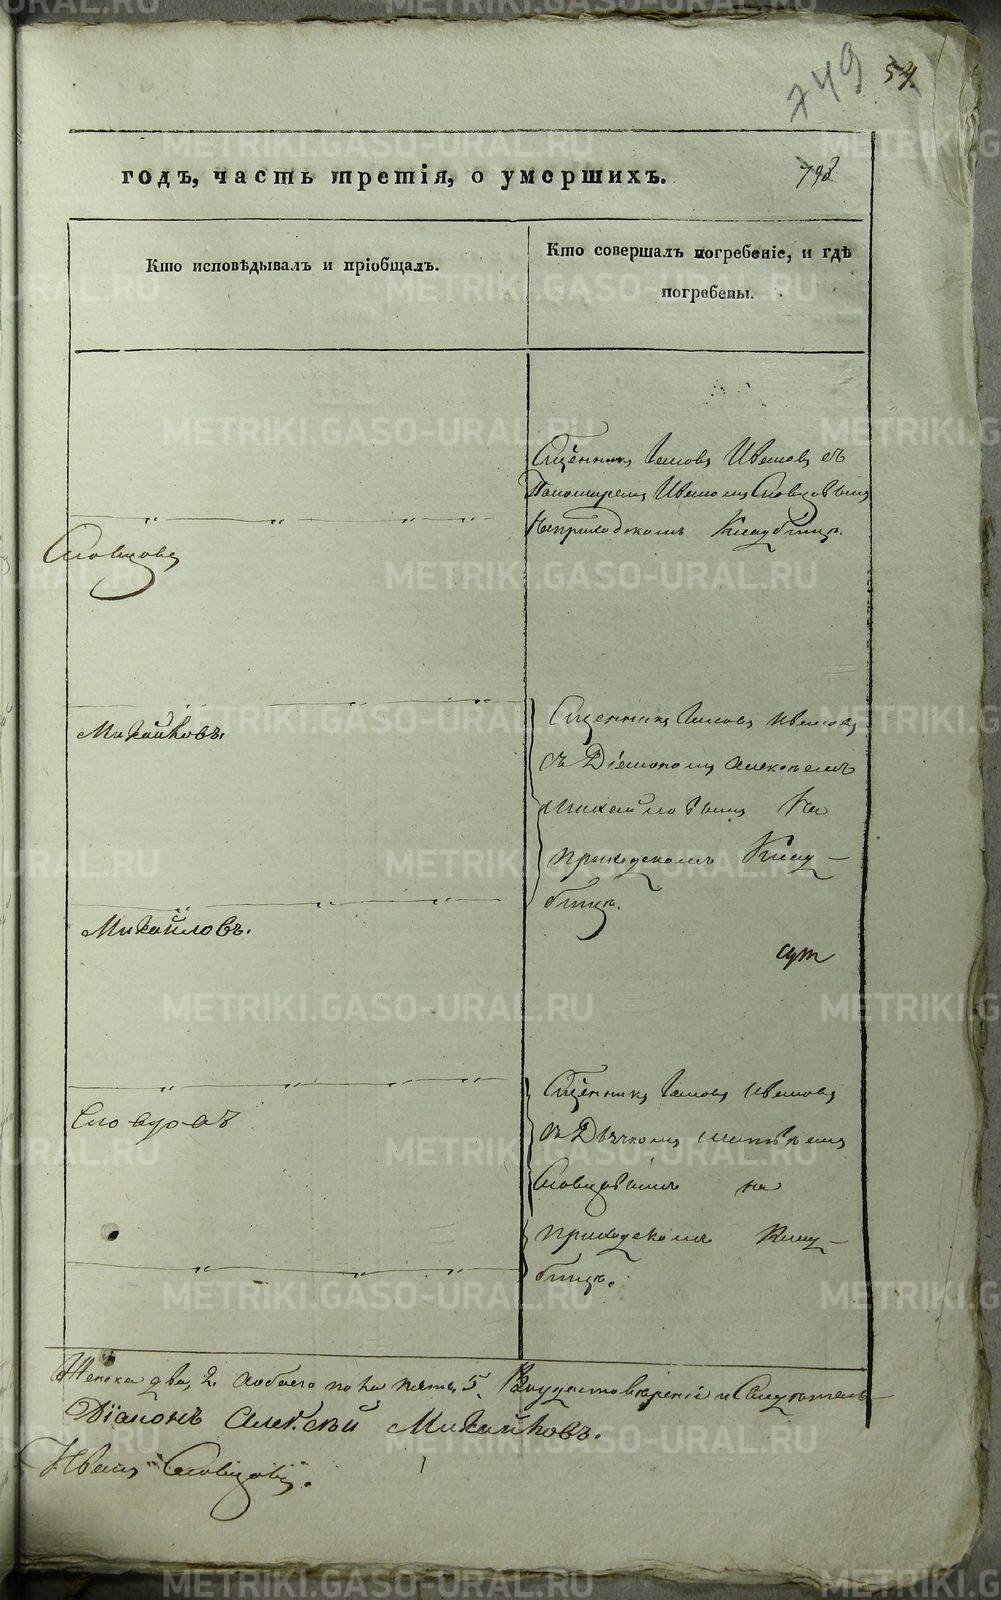 749 54.
годъ, часть третія, о умершихъ. 748
Кто исповѣдывалъ и пріобщалъ.
Кто совершалъ погребеніе, и гдѣ
погребены.
Сщенникъ Іаковъ Ивановъ съ
Пономаремъ Иваномъ Словцовымъ
на приходскомъ Кладбищѣ.
Словцовъ
Михайловъ.
Священникъ Іаковъ Ивановъ
съ Діакономъ Алексѣемъ
Михайловымъ На
приходскомъ Клад-
бищѣ.
Михайловъ.
Сщенникъ Іаковъ Ивановъ
съ Дьячкомъ
Словцовымъ на
приходскомъ Клад-
бищѣ.
Словцовъ
Женска два, 2. Аобоего пола пять, 5.
Діаконъ Алексѣй Михайловъ.
Иванъ Словцовъ.
METRIKI.GASO-URAL.RU